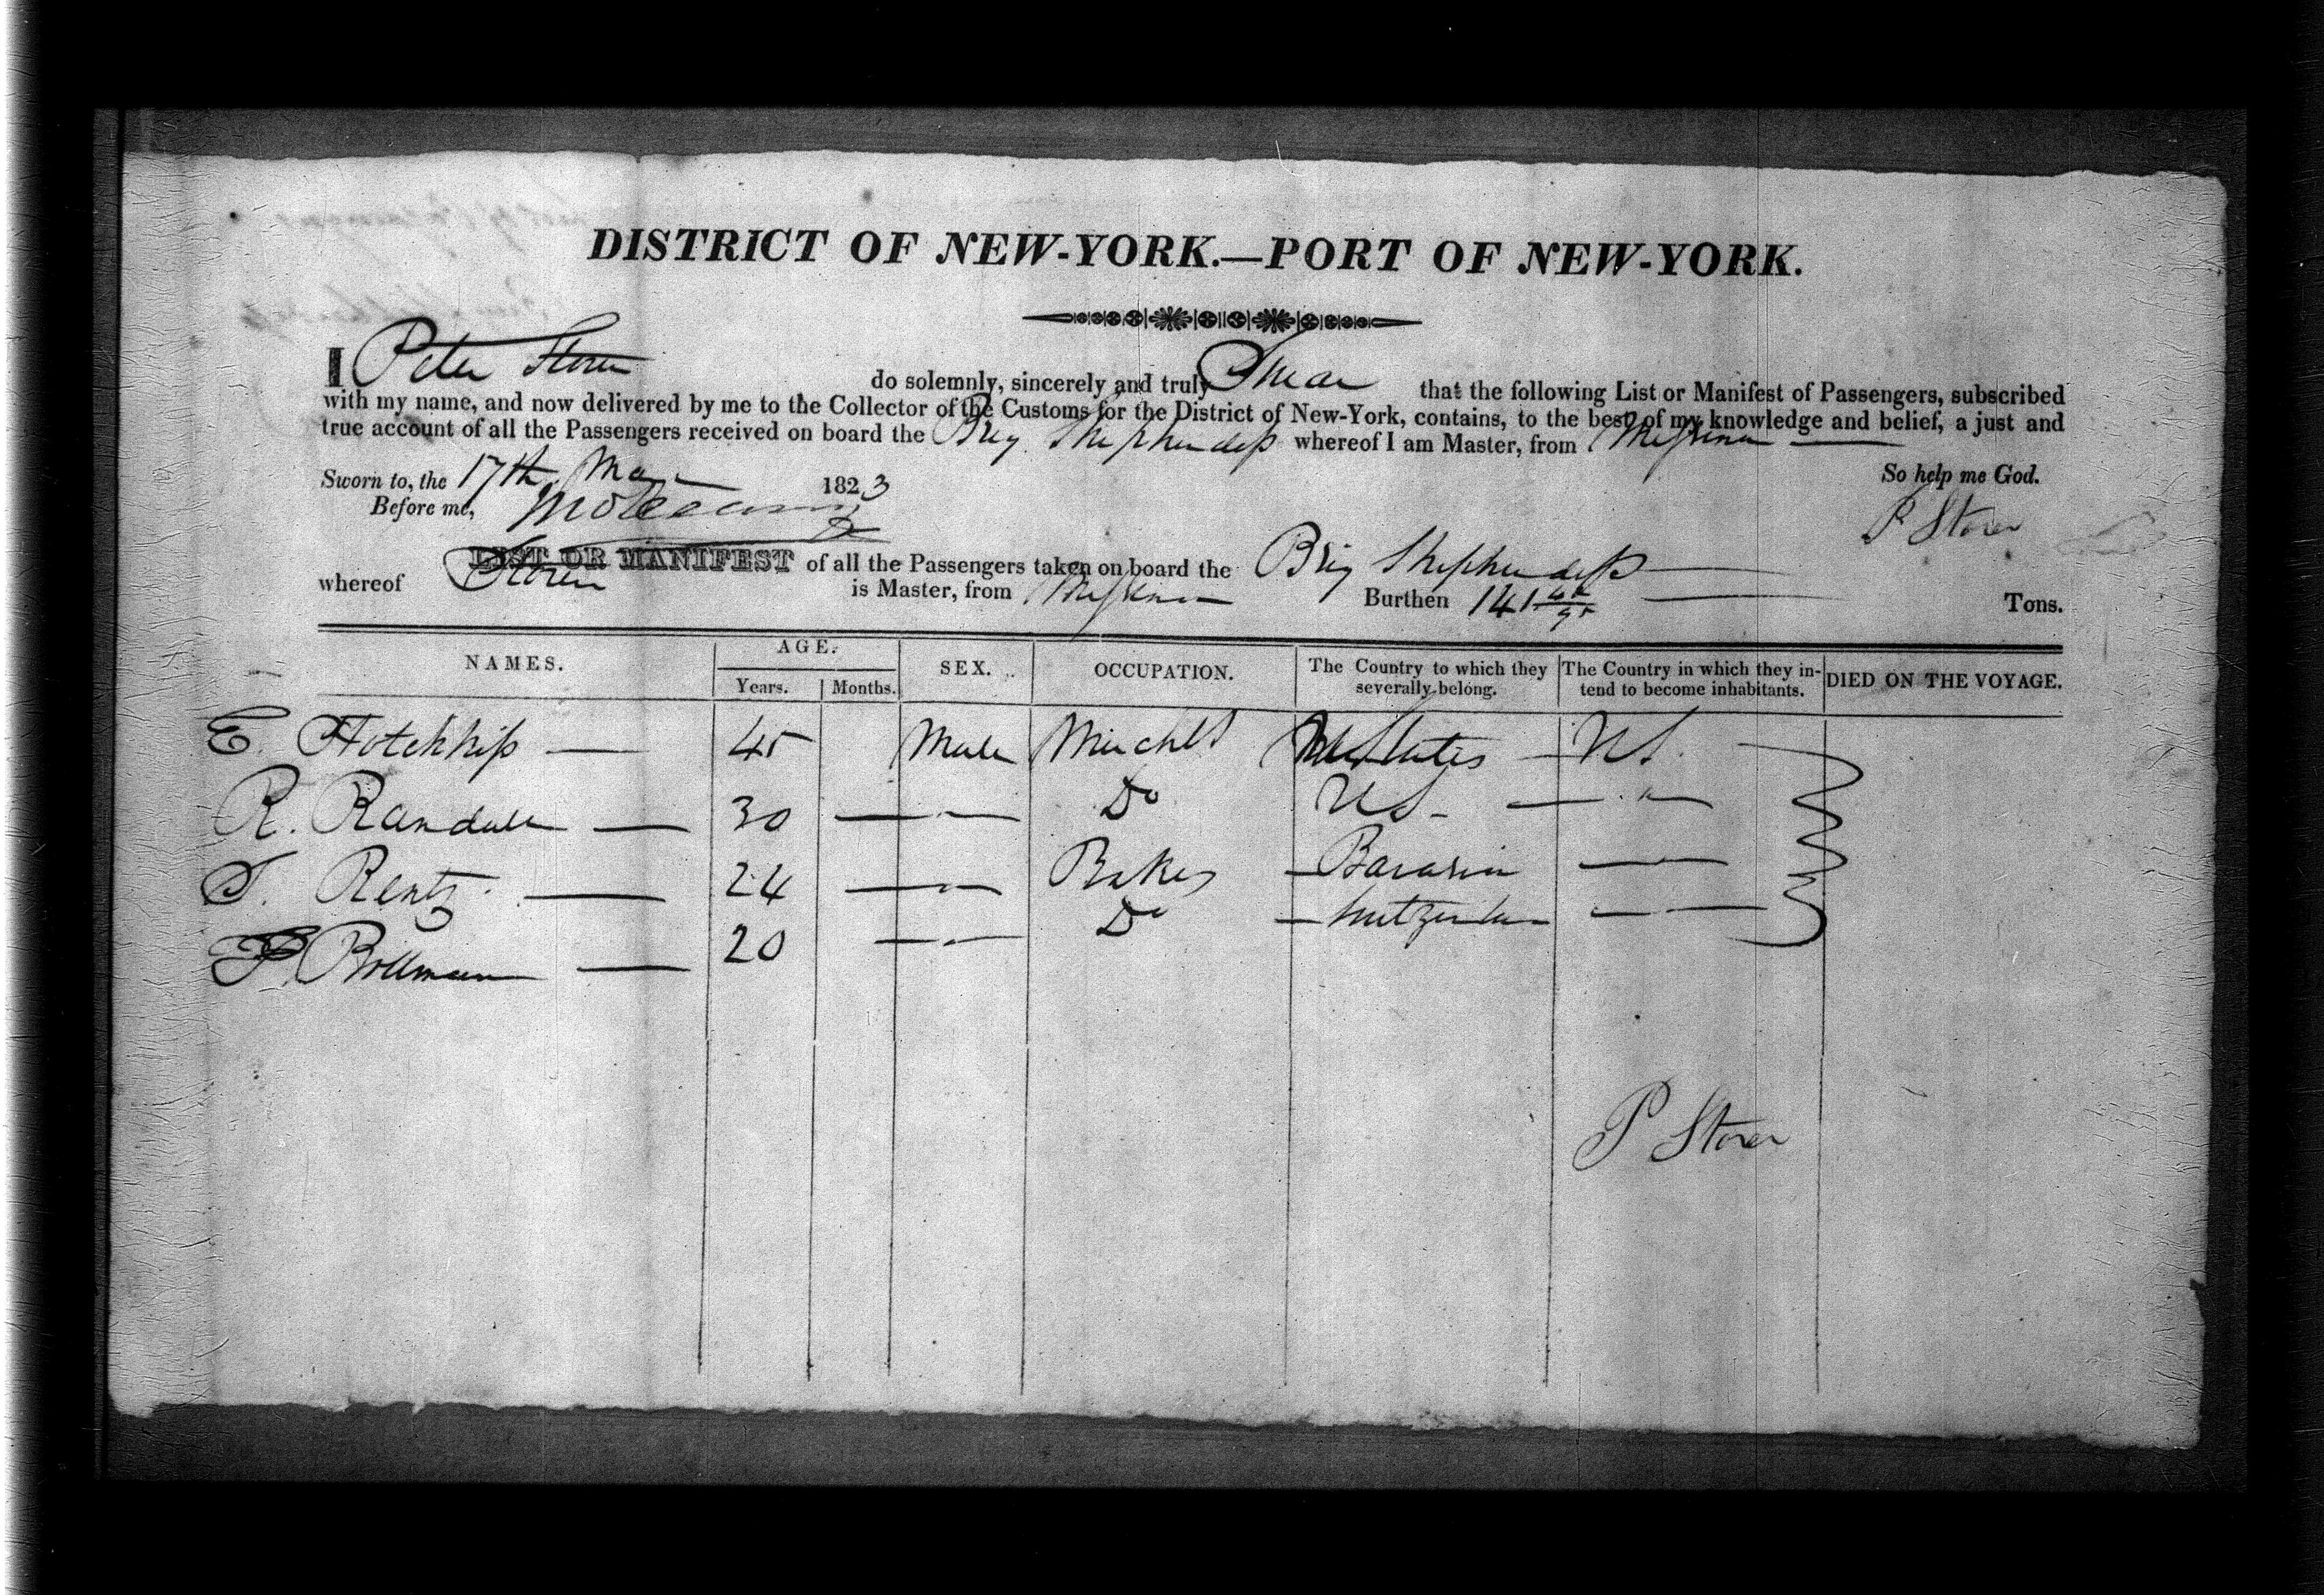 DISTRICT OF NEW-YORK.—PORT OF NEW-YORK.
I Peter Storer do solemnly, sincerely and truly Swear that the following List or Manifest of Passengers, subscribed
with my name, and now delivered by me to the Collector of the Customs for the District of New-York, contains, to the best of my knowledge and belief, a just and
true account of all the Passengers received on board the Brig Shepherdess whereof I am Master, from Messina
Sworn to, the 17th May 1823 So help me God.
Before me, P Storer
LIST OR MANIFEST of all the Passengers taken on board the Brig Shepherdess
whereof Storer is Master, from Messina Burthen 141 Tons.
NAMES. AGE. SEX. OCCUPATION. The Country to which they severally belong. The Country in which they intend to become inhabitants. DIED ON THE VOYAGE.
Years. Months.
E. Hotchkiss — 45 Male Mercht States — US.
R. Randall — 30 — " — Do US — " —
Rentz — 24 — " — Baker — Bavaria — " —
Bollman — 20 — " — Do — Switzerlan — " —
P Storer